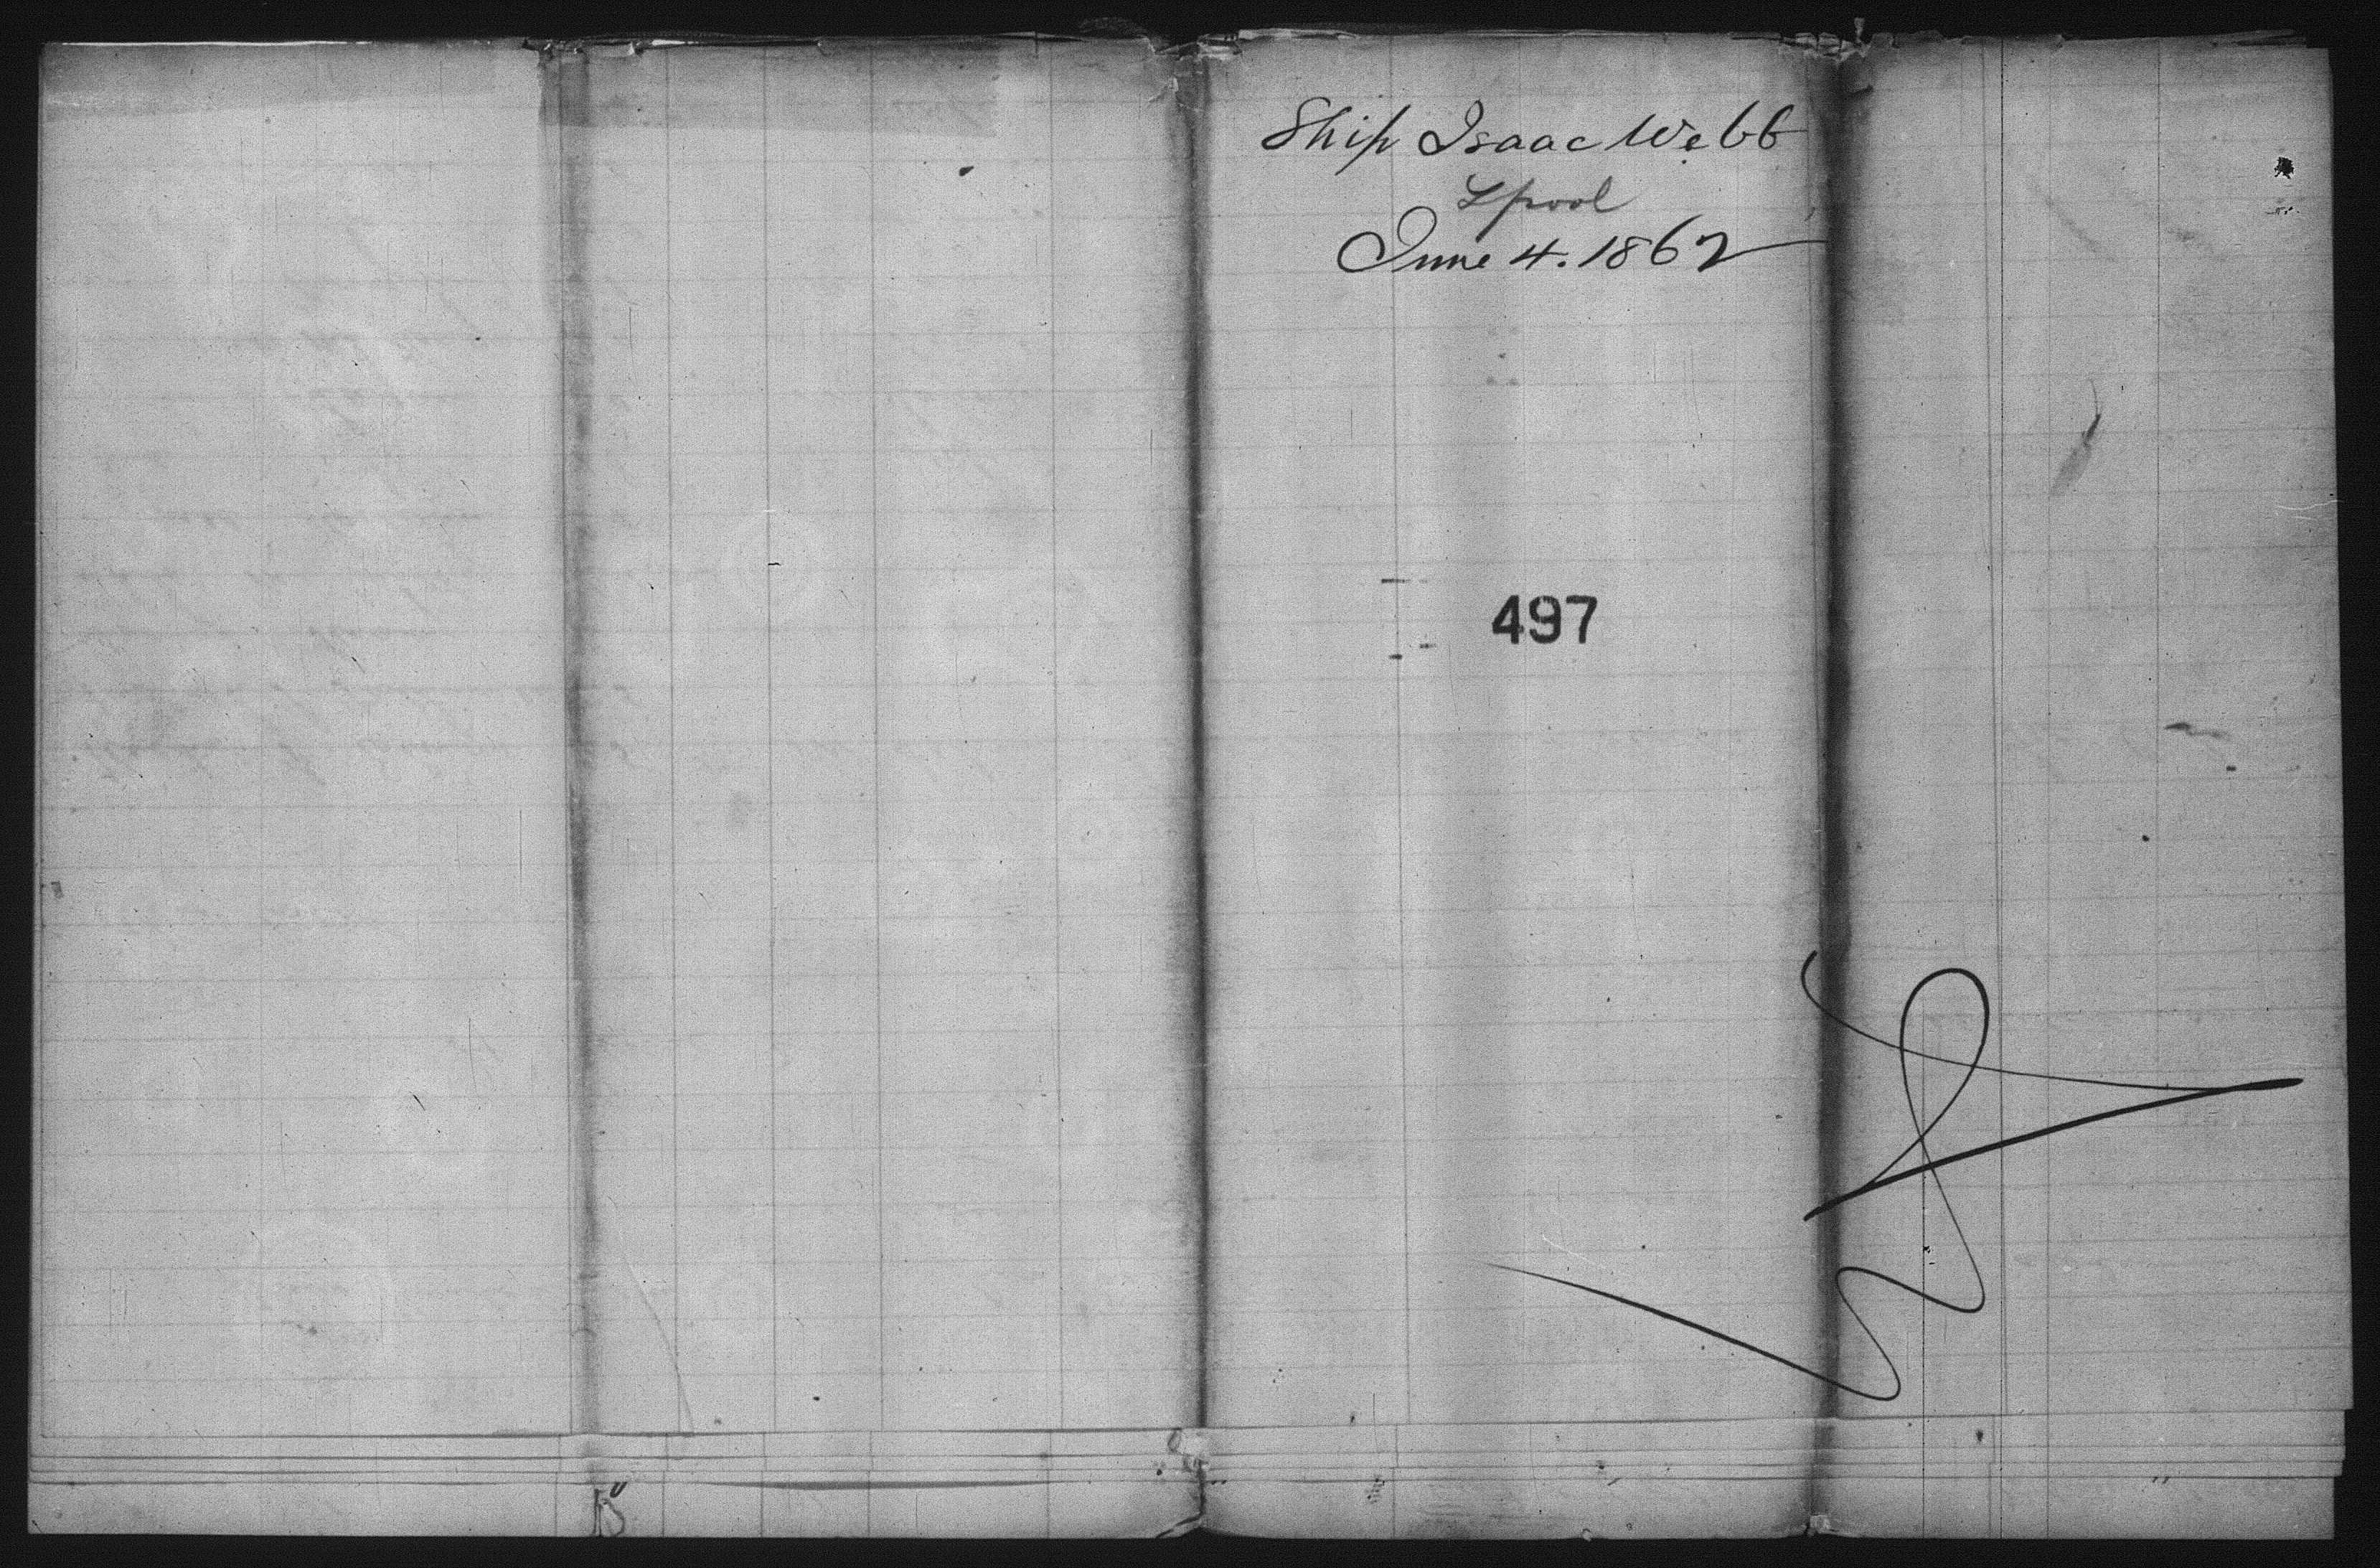 Ship Isaac Webb
Lpool
June 4. 1862
497